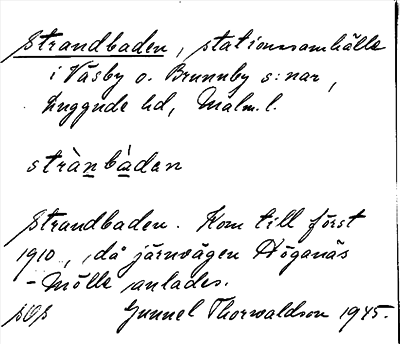 Strandbaden, stationssamhälle
i Väsby o. Brunnby s:nar,
Luggude hd, Malm. l.
strànbàden
Strandbaden. Kom till först
1910, då järnvägen Höganäs
-Mölle anlades.
Gunnel Thorwaldson 1945.